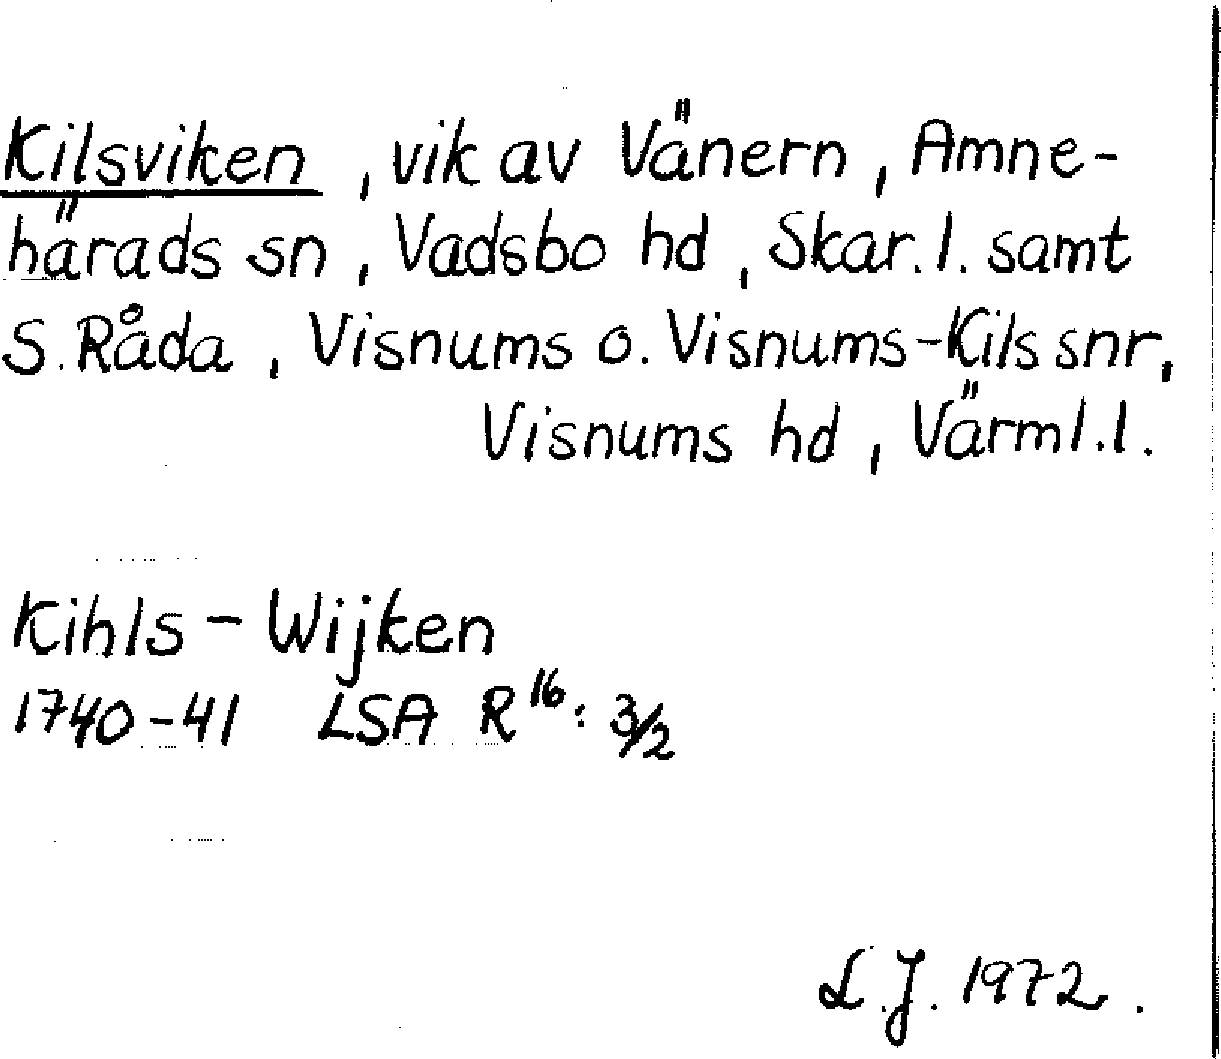 Kilsviken, vik av Vänern, Amne-
härads sn, Vadsbo hd, Skar. l. samt
S. Råda, Visnums o. Visnums-Kils snr,
Visnums hd, Värml. l.
Kihls-Wijken
1740-41 LSA R¹⁶: 3/2
L.J. 1972.